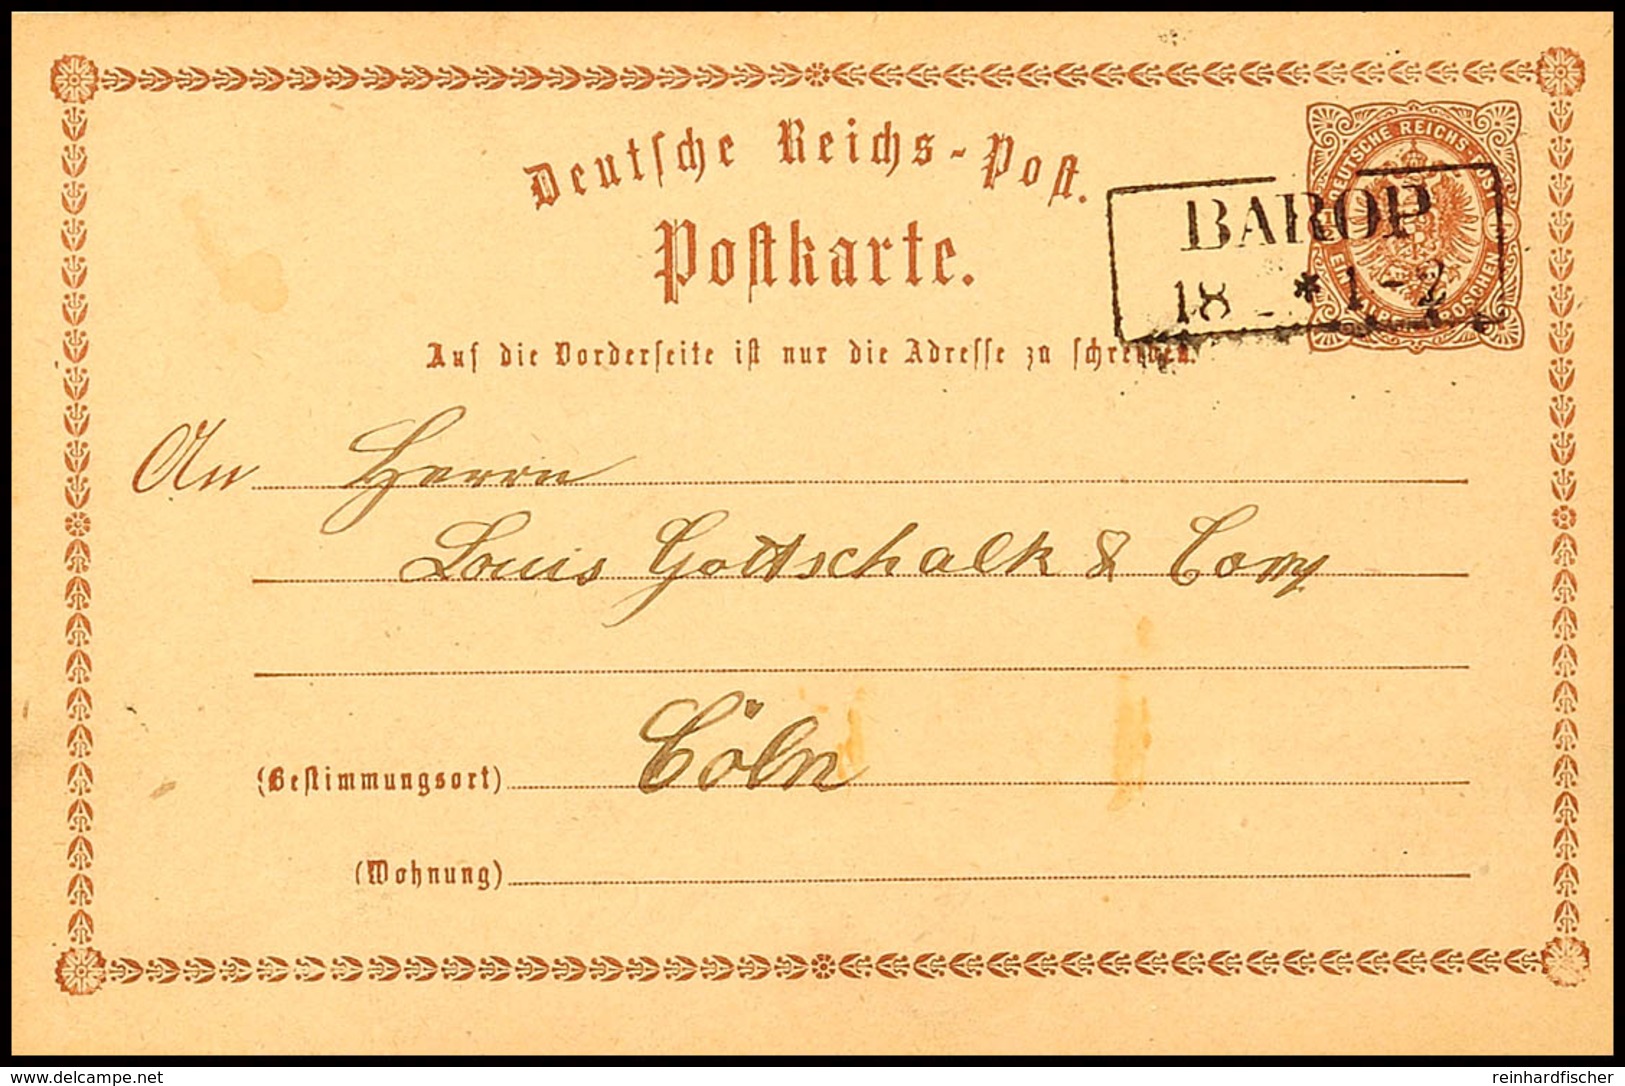 Deutsche Reichs-Post.
Postkarte.
Auf die Vorderseite ist nur die Adresse zu schreiben.
DEUTSCHE REICHS-POST
BAROP
18 * 1-2
An Herrn
Louis Gottschalk & Comp
Cöln
(Bestimmungsort)
(Wohnung)
delcampe.net
reinhardfischer